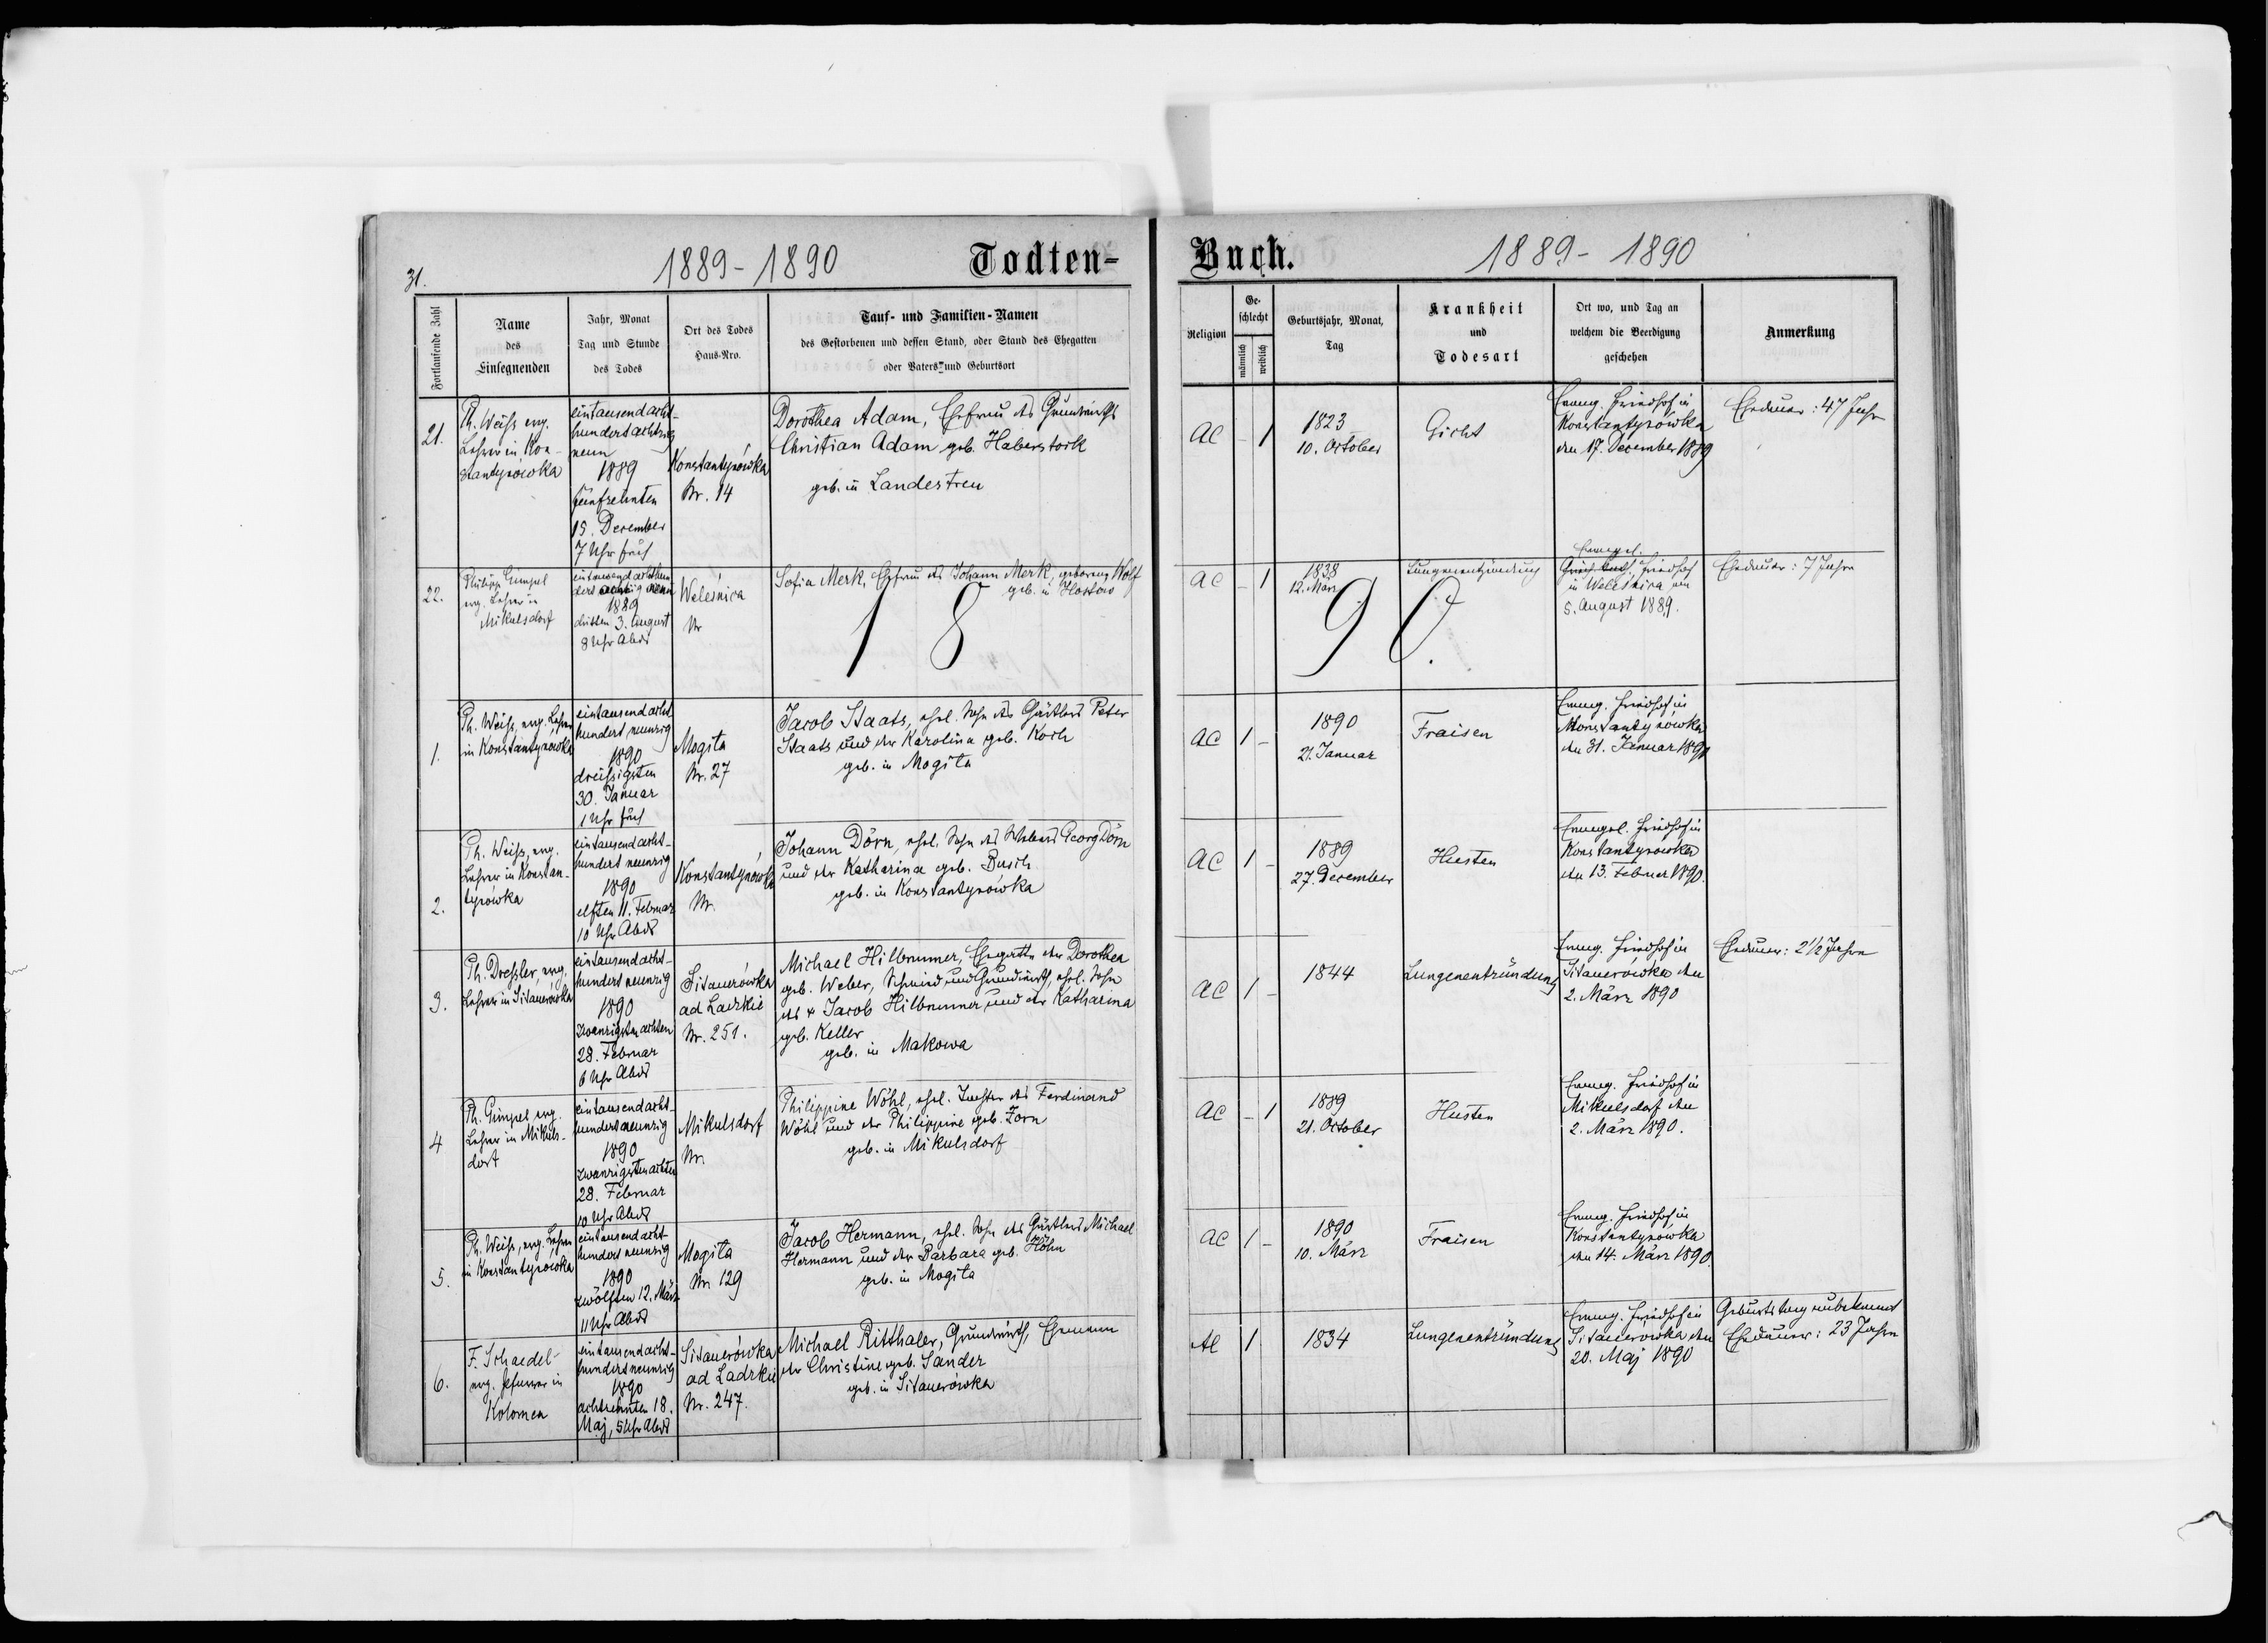 31.
1889-1890
Todten-
Buch.
1889-1890
Fortlaufende Zahl
Name
des
Einsegnenden
Jahr, Monat
Tag und Stunde
des Todes
Ort des Todes
Haus-Nro.
Tauf- und Familien-Namen
des Gestorbenen und dessen Stand, oder Stand des Ehegatten
oder Vaters und Geburtsort
Religion
Ge-
schlecht
männlich
weiblich
Geburtsjahr, Monat,
Tag
Krankheit
und
Todesart
Ort wo, und Tag an
welchem die Beerdigung
geschehen
Anmerkung
21.
Ph. Weiss evg.
Lehrer in Kon-
stantynówka
eintausendacht-
hundertachtzig
neun
1889
fünfzehnten
15. December
7 Uhr früh
Konstantynówka
Nr. 14
Dorothea Adam, Ehefrau des Grundwirths
Christian Adam geb. Haberstock
geb. in Landestreu
AC
-
1
1823
10. October
Gicht
Evang. Friedhof in
Konstantynówka
den 17. December 1889
Ehedauer: 47 Jahre
22.
Philipp Gimpel
evg. Lehrer in
Mikulsdorf
eintausendachthun
dert achtzig neun
1889
dritten 3. August
8 Uhr Abds
Welesnica
Nr
Sofia Merk, Ehefrau des Johann Merk, geborene Wolf
geb. in Hostow
AC
-
1
1838
12. März
Lungenentzündung
Evangel.
Friedhof
in Welesnica am
5. August 1889.
Ehedauer: 7 Jahre
1890.
1.
Ph. Weiss, evg. Lehrer
in Konstantynowka
eintausendacht
hundert neunzig
1890
dreissigsten
30. Januar
1 Uhr früh
Mogila
Nr. 27
Jacob Staats, ehel. Sohn des Gärtlers Peter
Staats und der Karolina geb. Koch
geb. in Mogila
AC
1
-
1890
21. Januar
Fraisen
Evang. Friedhof in
Konstantynówka
den 31. Januar 1890
2.
Ph. Weiss, evg.
Lehrer in Konstan-
tynówka
eintausendacht-
hundert neunzig
1890
elften 11. Februar
10 Uhr Abds
Konstantynówka
Nr.
Johann Dörn, ehel. Sohn des Webers Georg Dörn
und der Katharina geb. Busch
geb. in Konstantynówka
AC
1
-
1889
27. December
Husten
Evangel. Friedhof in
Konstantynowka
den 13. Februar 1890.
3.
Ph. Dressler, evg.
Lehrer in Sitauerówka
eintausendacht-
hundert neunzig
1890
zwanzigstenachten
28. Februar
6 Uhr Abds
Sitauerówka
ad Ladzkie
Nr. 251.
Michael Hilbrunner, Ehegatte der Dorothea
geb. Weber, Schmied und Grundwirth, ehel. Sohn
des + Jacob Hilbrunner und der Katharina
geb. Keller
geb. in Makowa
AC
1
-
1844
Lungenentzündung
Evang. Friedhof in
Sitauerówka den
2. März 1890
Ehedauer: 2½ Jahre
4
Ph. Gimpel evg.
Lehrer in Mikuls-
dorf
eintausendacht-
hundertneunzig
1890
zwanzigstenachten
28. Februar
10 Uhr Abds
Mikulsdorf
Nr.
Philippine Wöhl, ehel. Tochter des Ferdinand
Wöhl und der Philippine geb. Zorn
geb. in Mikulsdorf
AC
-
1
1889
21. October
Husten
Evang. Friedhof in
Mikulsdorf den
2. März 1890.
5.
Ph. Weiss, evg. Lehrer
in Konstantynowka
eintausendacht
hundert neunzig
1890
zwölften 12. März
11 Uhr Abds
Mogila
Nr. 129
Jacob Hermann, ehel. Sohn des Gärtlers Michael
Hermann und der Barbara geb. Höhn
geb. in Mogila
AC
1
-
1890
10. März
Fraisen
Evang. Friedhof in
Konstantynówka
den 14. März 1890.
6.
F. Schaedel
evg. Pfarrer in
Kolomea
eintausendacht-
hundertneunzig
1890
achtzehnten 18.
Maj, 5 Uhr Abds
Sitauerówka
ad Ladzkie
Nr. 247.
Michael Ritthaler, Grundwirth, Ehemann
der Christine geb. Sander
geb. in Sitauerówka
AC
1
1834
Lungenentzündung
Evang. Friedhof in
Sitauerówka den
20. Maj 1890
Geburtstag unbekannt
Ehedauer: 23 Jahre